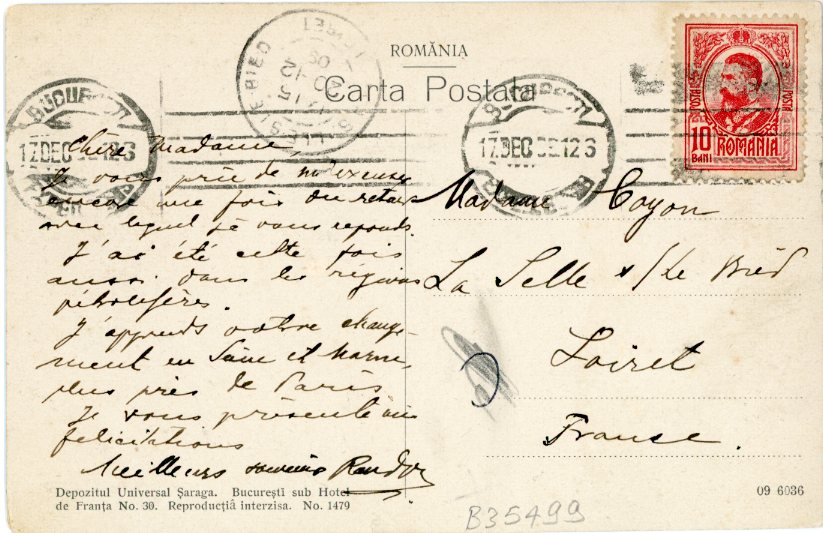 ROMÂNIA
Carta Postala
BUCURESTI
17 DEC
LOIRET
POSTA
POSTA
10
BANI
ROMANIA
Chère Madame,
Je vous prie de m'excuser
encore une fois du retard
avec lequel je vous reponds.
J'ai été cette fois
aussi dans les régions
pétrolifères.
J'apprends votre change-
ment en Seine et Marne
plus près de Paris
Je vous présente mes
felicitations
Meilleurs souvenirs
Madame Coyon
La Selle s/ Le Bied
Loiret
France.
Depozitul Universal Șaraga. București sub Hotel
de Franța No. 30. Reproducțiă interzisa. No. 1479
09 6036
B35499